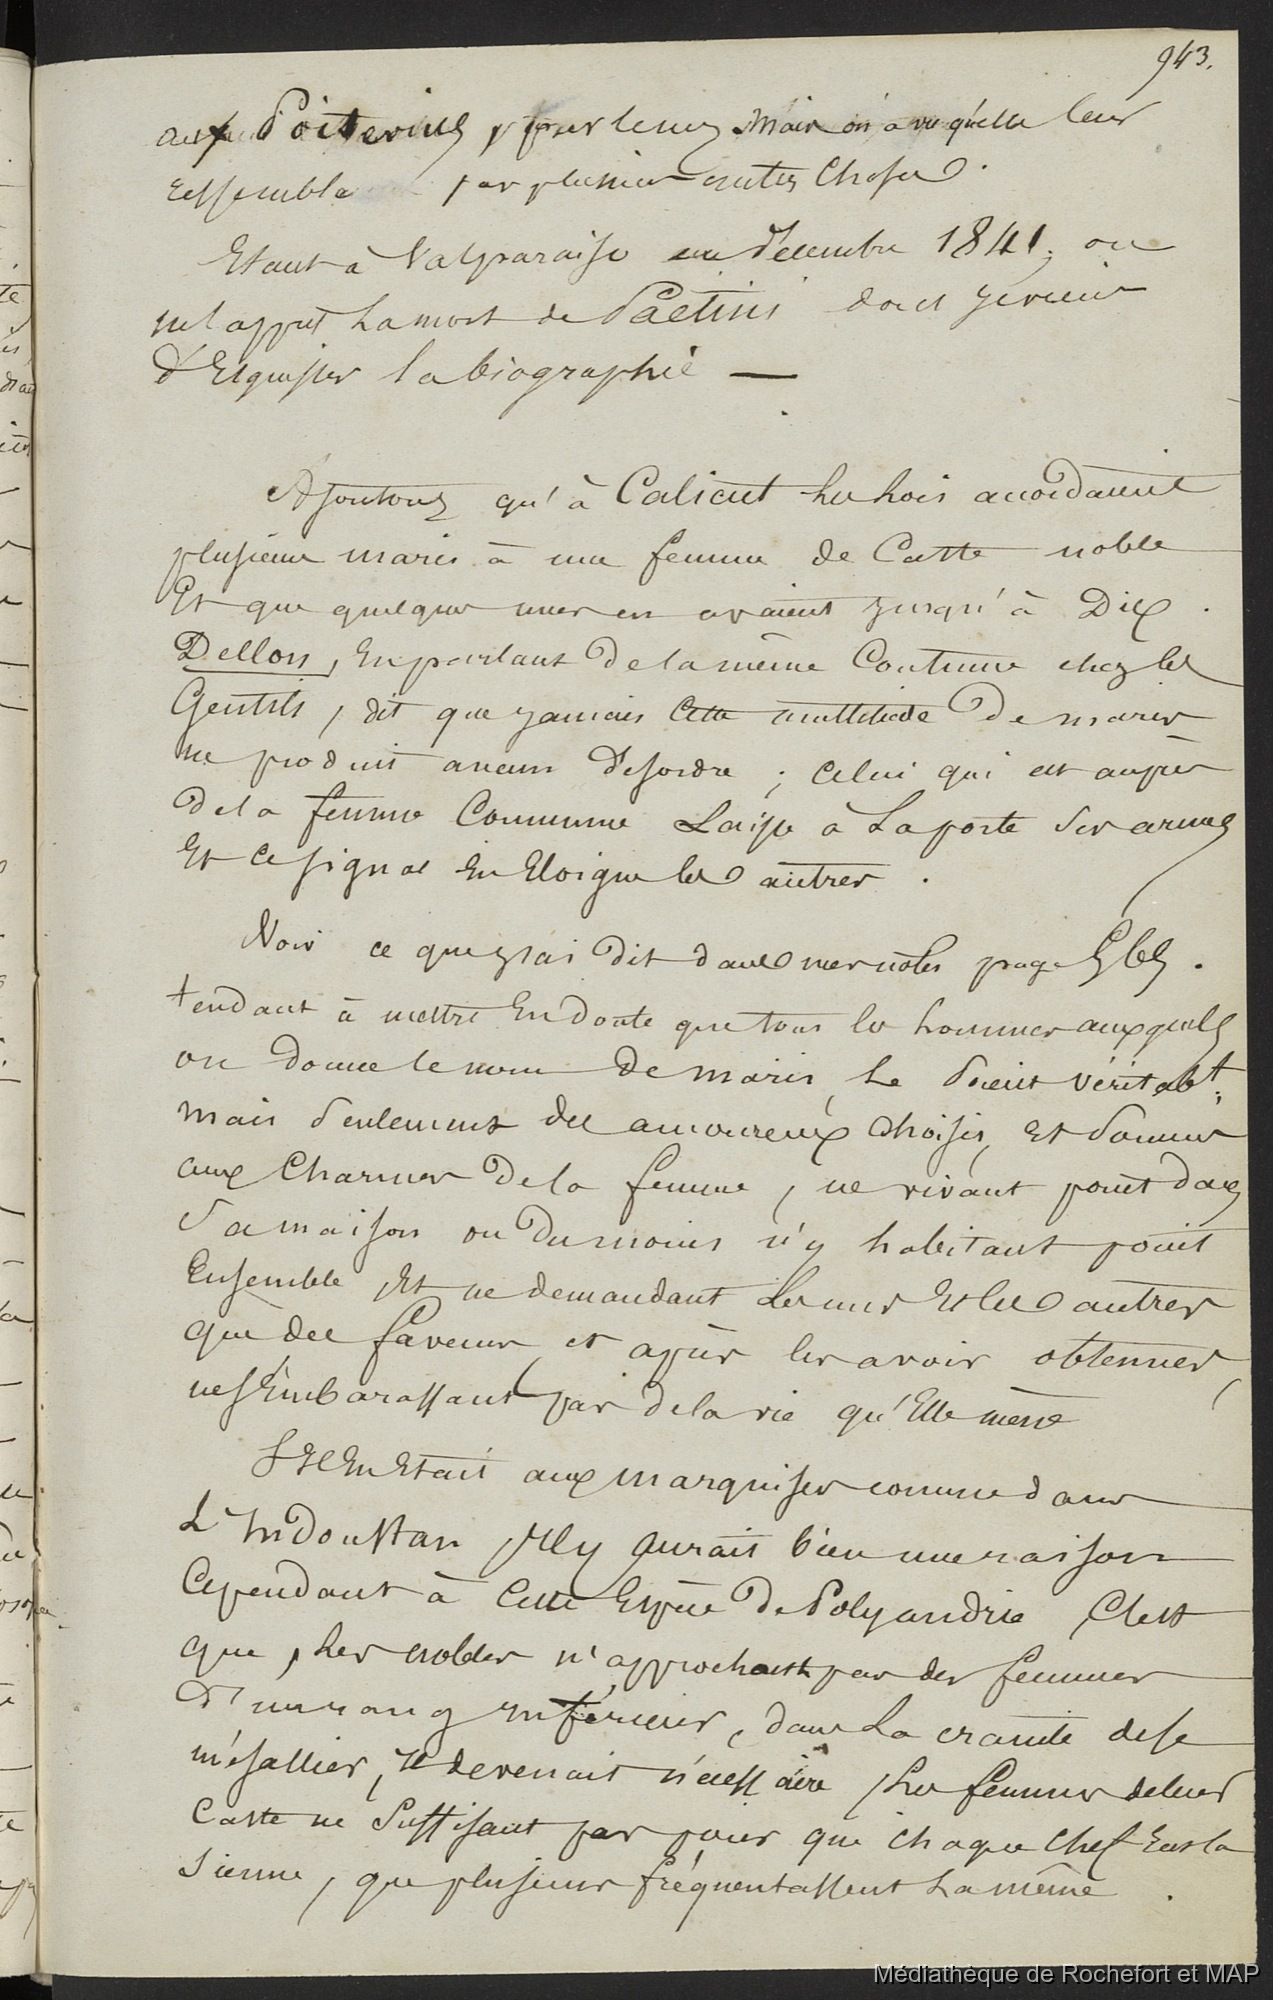 943.
aux Poitevins, par leurs Mais on a vu qu'elle leur
ressemble par plusieurs autres Choses.
Etant à Valparaiso en décembre 1841, on
m'apprit La mort de Paetini dont je viens
d'Esquisser la biographie —
Ajoutons qu'à Calicut les lois accordaient
plusieurs maris à une femme de Caste noble
Et que quelques unes en avaient jusqu'à Dix.
Dellon, En parlant de la même Coutume chez les
Gentils, dit que jamais Cette multitude De maris
ne produit aucun Désordre ; Celui qui est auprès
De la femme Commune Laisse à La porte Ses armes
Et Ce signal En Eloigne les autres.
Voir ce que j'ai Dit dans mes notes page
tendant à mettre En Doute que tous les hommes auxquels
on donne le nom De maris, Le Soient véritablt,
mais Seulement des amoureux Choisis, Et Soumis
aux Charmes De la femme, ne vivant point dans
Sa maison ou Du moins n'y habitant point
Ensemble, Et ne demandant Les uns Et les autres
que des faveurs, et après les avoir obtenues,
ne s'Embarassant pas de la vie qu'Elle mène
S'il En Etait aux marquises comme dans
L'Indoustan, Il y aurait bien une raison
Cependant à Cette Espèce De Polyandrie, C'est
que, Les nobles n'approchant pas des femmes
D'un rang inférieur, dans La crainte de se
mésallier, Il devenait nécessaire, Les femmes de leur
Caste ne Suffisant pas pour que chaque Chef Eut la
Sienne, que plusieurs fréquentassent La même.
Médiathèque de Rochefort et MAP